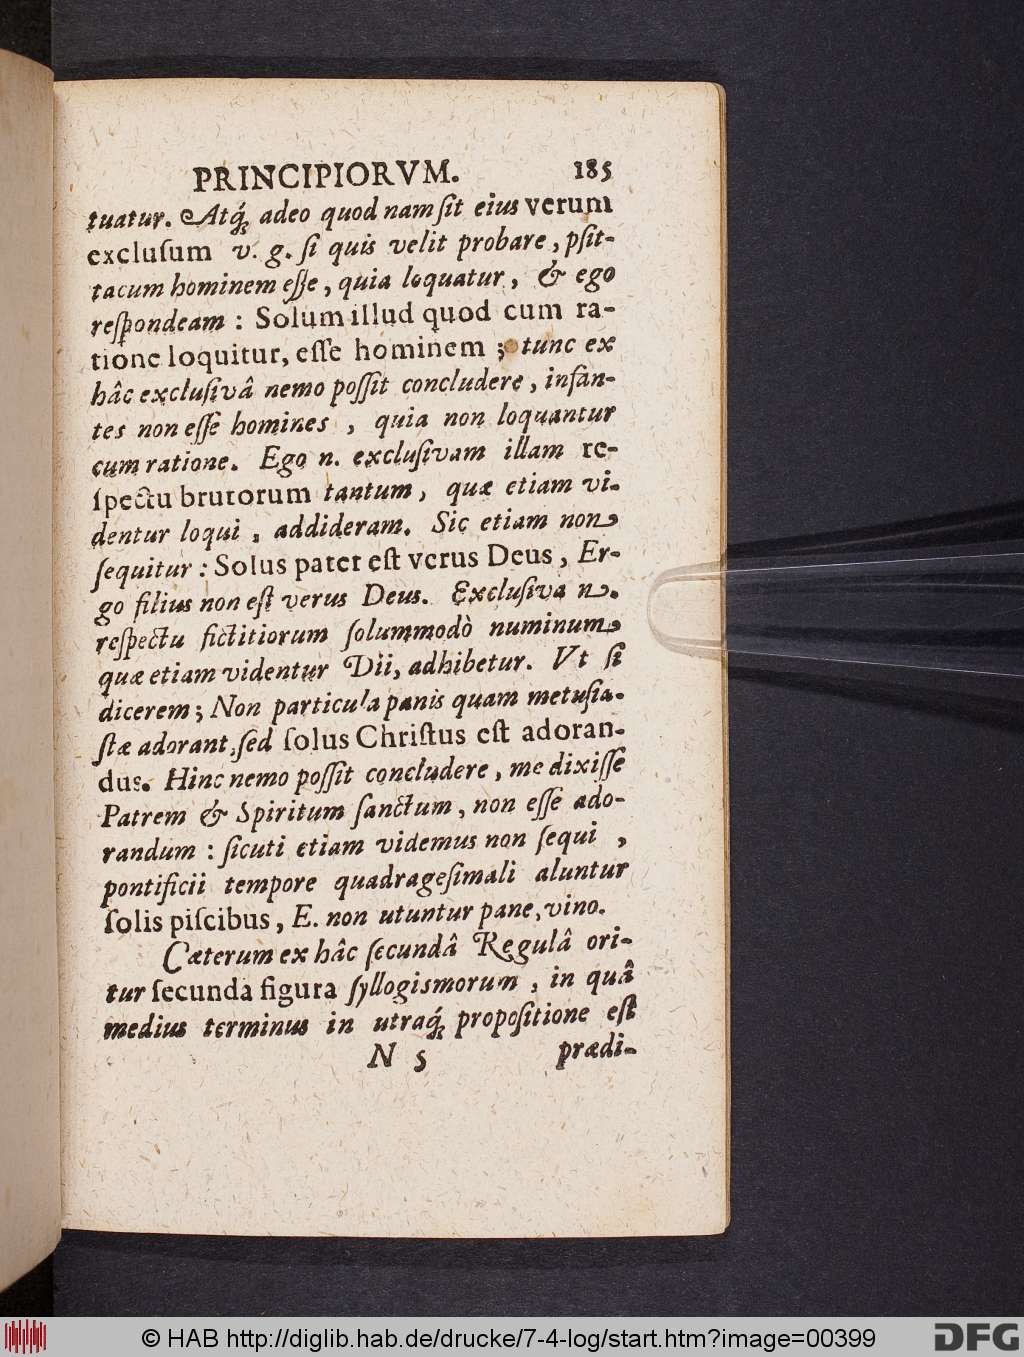 PRINCIPIORVM. 185
tuatur. Atq́; adeo quod nam ſit eius verum
excluſum v. g. ſi quis velit probare, pſit-
tacum hominem eſſe, quia loquatur, & ego
reſpondeam: Solum illud quod cum ra-
tione loquitur, eſſe hominem; tunc ex
hâc excluſivâ nemo poſſit concludere, infan-
tes non eſſe homines, quia non loquantur
cum ratione. Ego n. excluſivam illam re-
ſpectu brutorum tantum, quæ etiam vi-
dentur loqui, addideram. Sic etiam non
ſequitur: Solus pater eſt verus Deus, Er-
go filius non eſt verus Deus. Excluſiva n.
reſpectu fictitiorum ſolummodò numinum
quæ etiam videntur Dii, adhibetur. Vt ſi
dicerem; Non particula panis quam metuſia-
ſtæ adorant, ſed ſolus Chriſtus eſt adoran-
dus. Hinc nemo poſſit concludere, me dixiſſe
Patrem & Spiritum ſanctum, non eſſe ado-
randum: ſicuti etiam videmus non ſequi,
pontificii tempore quadrageſimali aluntur
ſolis piſcibus, E. non utuntur pane, vino.
Cæterum ex hâc ſecundâ Regulâ ori-
tur ſecunda figura ſyllogismorum, in quâ
medius terminus in utraq́; propoſitione eſt
N 5 prædi-
© HAB http://diglib.hab.de/drucke/7-4-log/start.htm?image=00399
DFG